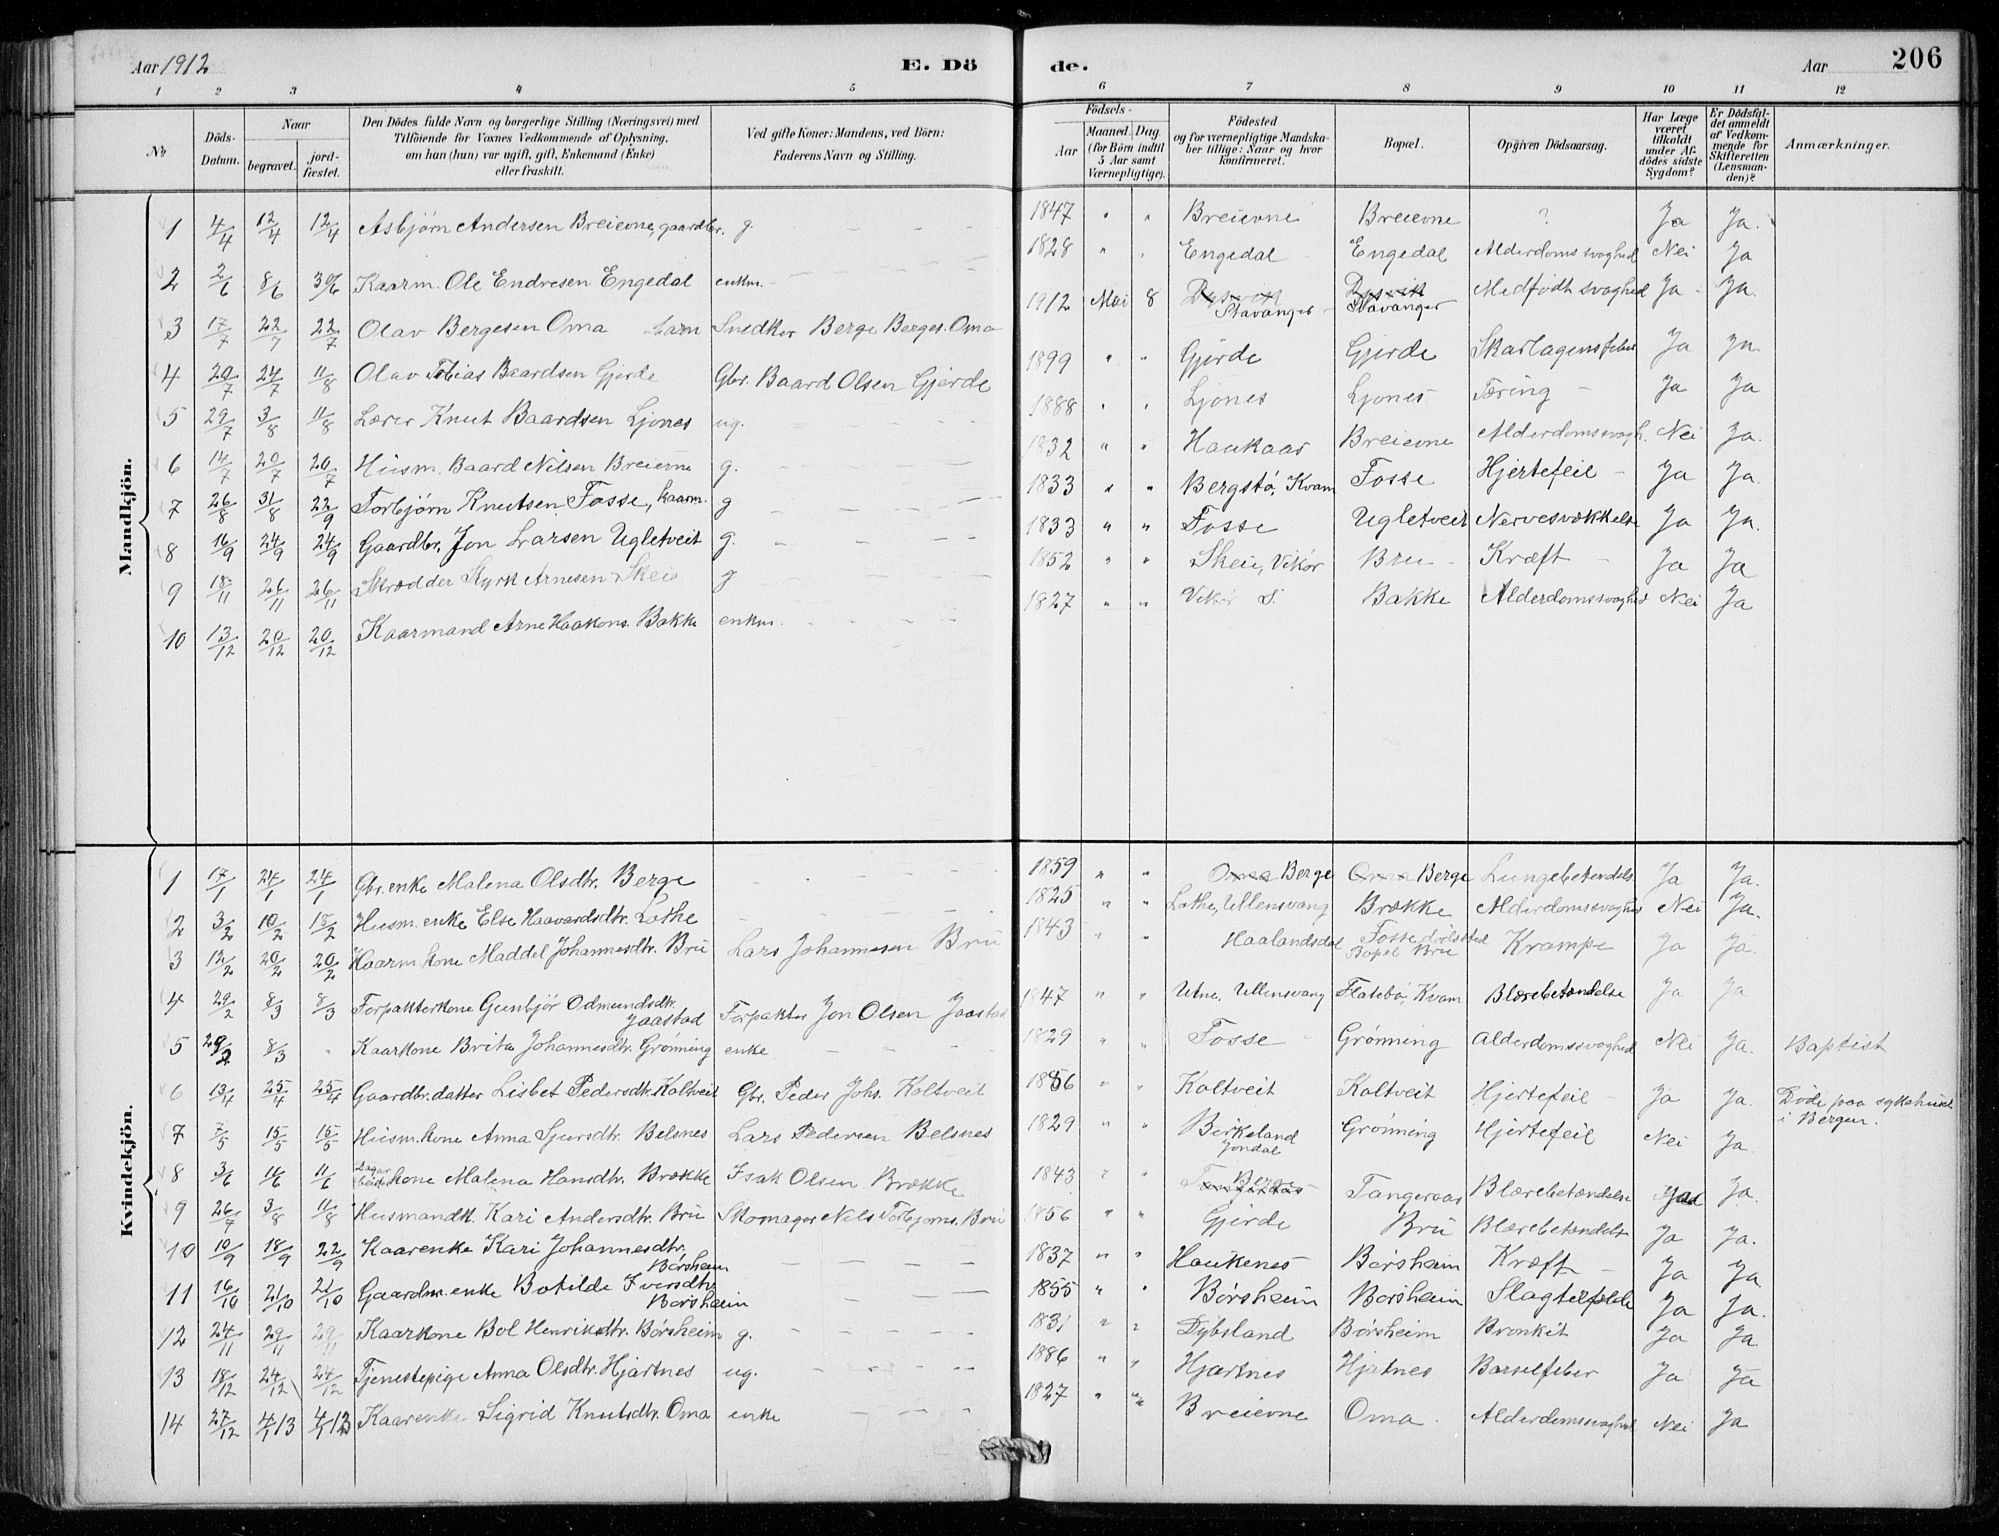 Aar 1912 E. Dö de. Aar 206
1 2 3 4 5 6 7 8 9 10 11 12
№ Döds-Datum. Naar begravet. jordfæstet. Den Dödes fulde Navn og borgerlige Stilling (Næringsvei) med Tilföiende for Voxnes Vedkommende af Oplysning, om han (hun) var ugift, gift, Enkemand (Enke) eller fraskilt. Ved gifte Koner: Mandens, ved Börn: Faderens Navn og Stilling. Födsels- Aar Maaned. Dag. (for Börn indtil 5 Aar samt Værnepligtige). Födested og for værnepligtige Mandskaber tillige: Naar og hvor konfirmeret. Bopæl. Opgiven Dödsaarsag. Har Læge været tilkaldt under Afdödes sidste Sygdom? Er Dödsfaldet anmeldt af Vedkommende for Skifteretten (Lensmanden)? Anmærkninger.
Mandkjön.
1 4/4 12/4 12/4 Asbjørn Andersen Breievne, gaardbr. g. 1847 " " Breievne Breievne ? Ja Ja.
2 2/6 8/6 30/6 Kaarm. Ole Endresen Engedal enkm. 1828 " " Engedal Engedal Alderdomssvaghed Nei Ja
3 17/7 22/7 22/7 Olav Bergesen Oma barn Snedker Berge Berges. Oma 1912 Mai 8 Stavanger Stavanger Medfødt svaghed Ja Ja.
4 20/7 24/7 11/8 Olav Tobias Baardsen Gjerde Gbr. Baard Olsen Gjerde 1899 " " Gjerde Gjerde Skarlagensfeber Ja Ja.
5 29/7 3/8 11/8 Lærer Knut Baardsen Ljones ug. 1888 " " Ljones Ljones Tæring Ja Ja
6 14/7 20/7 20/7 Husm. Baard Nilsen Breievne g. 1832 " " Haukaas Breievne Alderdomssvagh. Nei Ja.
7 26/8 31/8 22/9 Torbjørn Knutsen Fosse, kaarm. g 1833 " " Bergstø, Kvam Fosse Hjertefeil Ja Ja.
8 16/9 24/9 24/9 Gaardbr. Jon Larsen Ugletveit g. 1833 " " Fosse Ugletveit Nervesvækkelse Ja Ja.
9 18/11 26/11 26/11 Skrædder Styrk Arnesen Skeie g 1852 " " Skeie, Vikør Bru Kræft Ja Ja
10 13/12 20/12 20/12 Kaarmand Arne Haakons. Bakke enkm. 1827 " " Vikør S. Bakke Alderdomssvaghed Nei Ja
Kvindekjön.
1 17/1 24/1 24/1 Gbr. enke Malena Olsdtr. Berge 1859 " " Oma Berge Oma Berge Lungebetændels. Ja Ja.
2 3/2 10/2 18/2 Husm. enke Else Haavardsdtr. Lothe 1825 " " Lothe, Ullensvang Brække Alderdomssvaghed Nei Ja.
3 12/2 20/2 20/2 Kaarm. kone Maddel Johannesdtr. Bru Lars Johannesen Bru 1843 " " Haalandsdal Fosse dødssted Bopel Bru Krampe Ja Ja.
4 29/2 8/3 8/3 Forpakterkone Gunbjør Odmundsdtr. Jaastad Forpakter Jon Olsen Jaastad 1847 " " Utne, Ullensvang Flatebø, Kvam Blærebetændelse Ja Ja
5 29/2 8/3 " Kaarkone Brita Johannesdtr. Grønning enke 1829 " " Fosse Grønning Alderdomssvaghed Nei Ja. Baptist
6 13/4 25/4 25/4 Gaardbr. datter Lisbet Pedersdtr. Koltveit Gbr. Peder Johs. Koltveit 1886 " " Koltveit Koltveit Hjertefeil Ja Ja. Døde paa sykehuset i Bergen.
7 7/5 15/5 15/5 Husm. kone Anna Sjursdtr. Belsnes Lars Pedersen Belsnes 1829 " " Birkeland Jondal Grønning Hjertefeil Nei Ja.
8 3/6 11/6 11/6 Dagarbeider kone Malena Hansdtr. Brække Isak Olsen Brække 1843 " " Tangeraas Berge Tangeraas Blærebetændelse Ja Ja.
9 26/7 3/8 11/8 Husmandk. Kari Andersdtr. Bru Skomager Nils Torbjørns. Bru 1856 " " Gjerde Bru Blærebetændelse Ja Ja.
10 10/9 18/9 22/9 Kaarenke Kari Johannesdtr. Børsheim 1837 " " Haukenes Børsheim Kræft Ja Ja
11 16/10 21/10 21/10 Gaardm. enke Botilde Iversdtr. Børsheim 1855 " " Børsheim Børsheim Slagtilfælde Ja Ja.
12 24/11 29/11 29/11 Kaarkone Bol Henriksdtr. Børsheim g. 1831 " " Dybsland Børsheim Bronkit Ja Ja
13 18/12 24/12 24/12 Tjenestepige Anna Olsdtr. Hjartnes ug. 1886 " " Hjartnes Hjartnes Barselfeber Ja Ja
14 27/12 4/1 13 4/1 13 Kaarenke Sigrid Knutsdtr. Oma enke 1827 " " Breievne Oma Alderdomssvaghed Nei Ja